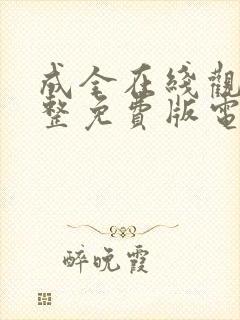 成全在綫觀
整免費版電
醉晚霞